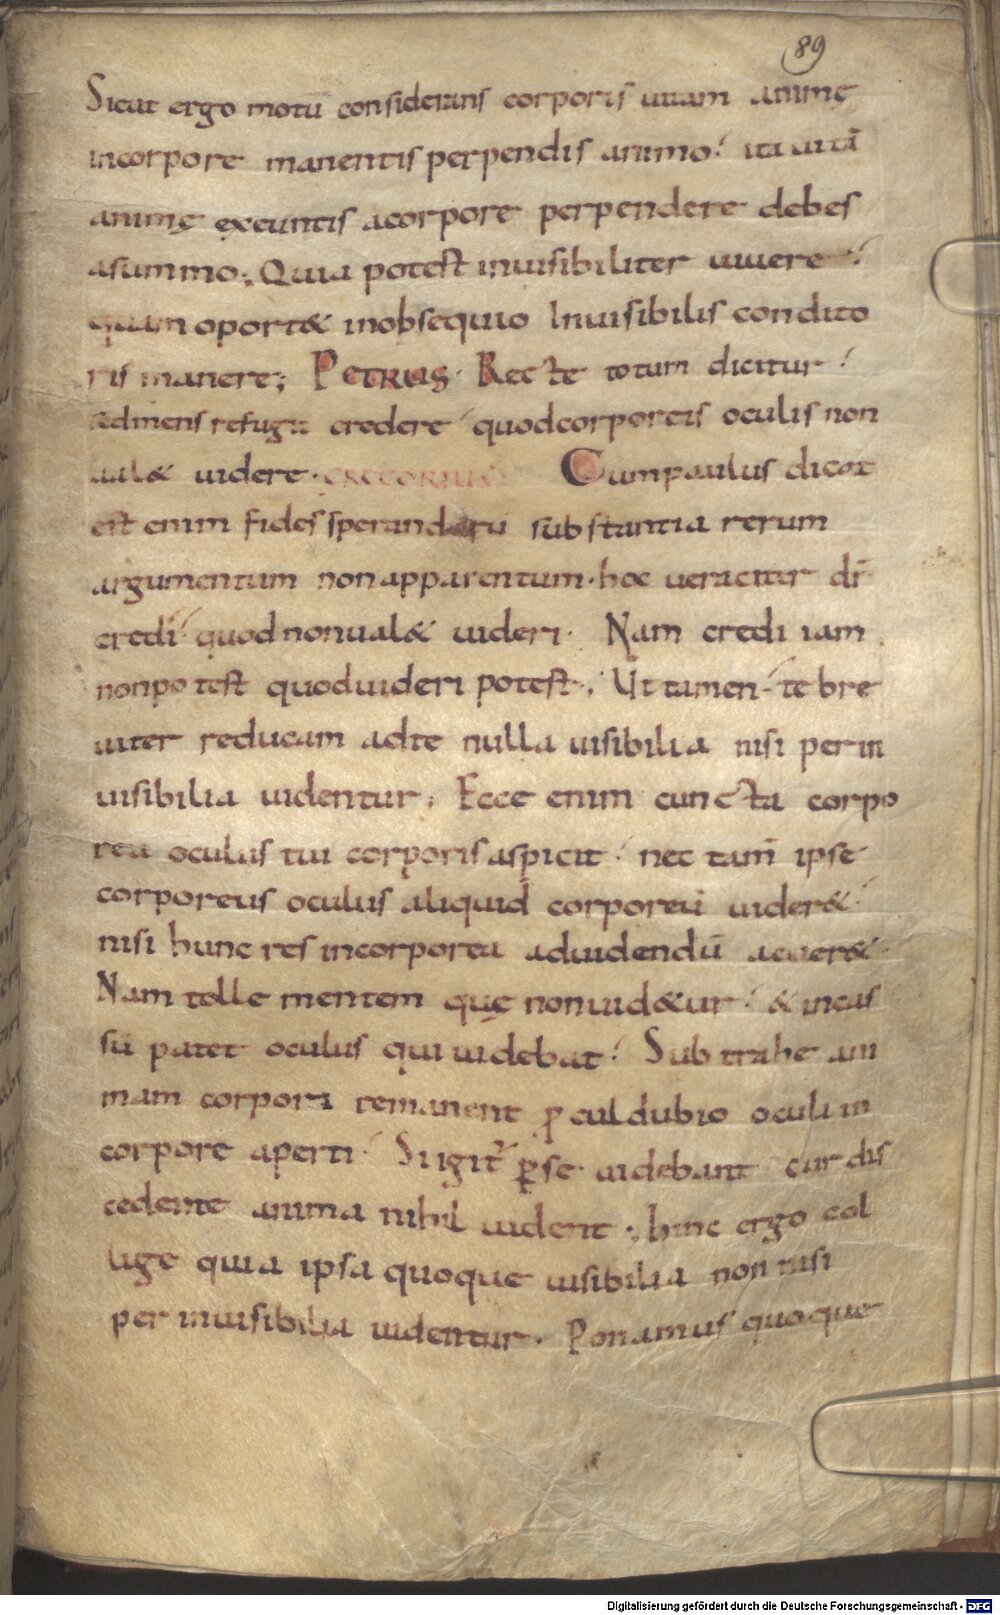 89
Sicut ergo motū considerans corporis uitam animę
incorpore manentis perpendis animo. ita uitā
animę exeuntis acorpore perpendere debes
asummo. Quia potest inuisibiliter uiuere.
quam oport& inobsequio Inuisibilis condito
ris manere; PETRUS. Recte totum dicitur.
sedmens refugit credere quodcorporeis oculis non
ual& uidere. GREGORIUS Cumpaulus dicat
est enim fides sperandarū substantia rerum
argumentum nonapparentum. hoc ueraciter dr̄
credi quodnonual& uideri. Nam credi iam
nonpotest quoduideri potest; Ut tamen te bre
uiter reducam adte nulla uisibilia nisi perin
uisibilia uidentur; Ecce enim cuncta corpo
rea oculus tui corporis aspicit. nec tam̄ ipse
corporeus oculus aliquid corporeū uider&.
nisi hunc res incorporea aduidendū acuer&.
Nam tolle mentem quę nonuid&ur. & incas
sū patet oculus qui uidebat. Subtrahe ani
mam corpori remanent ꝓculdubio oculi in
corpore aperti. Siigit̄ ꝑse uidebant cur dis
cedente anima nihil uident; hinc ergo col
lige quia ipsa quoque uisibilia non nisi
per inuisibilia uidentur. Ponamus quoque
Digitalisierung gefördert durch die Deutsche Forschungsgemeinschaft - DFG